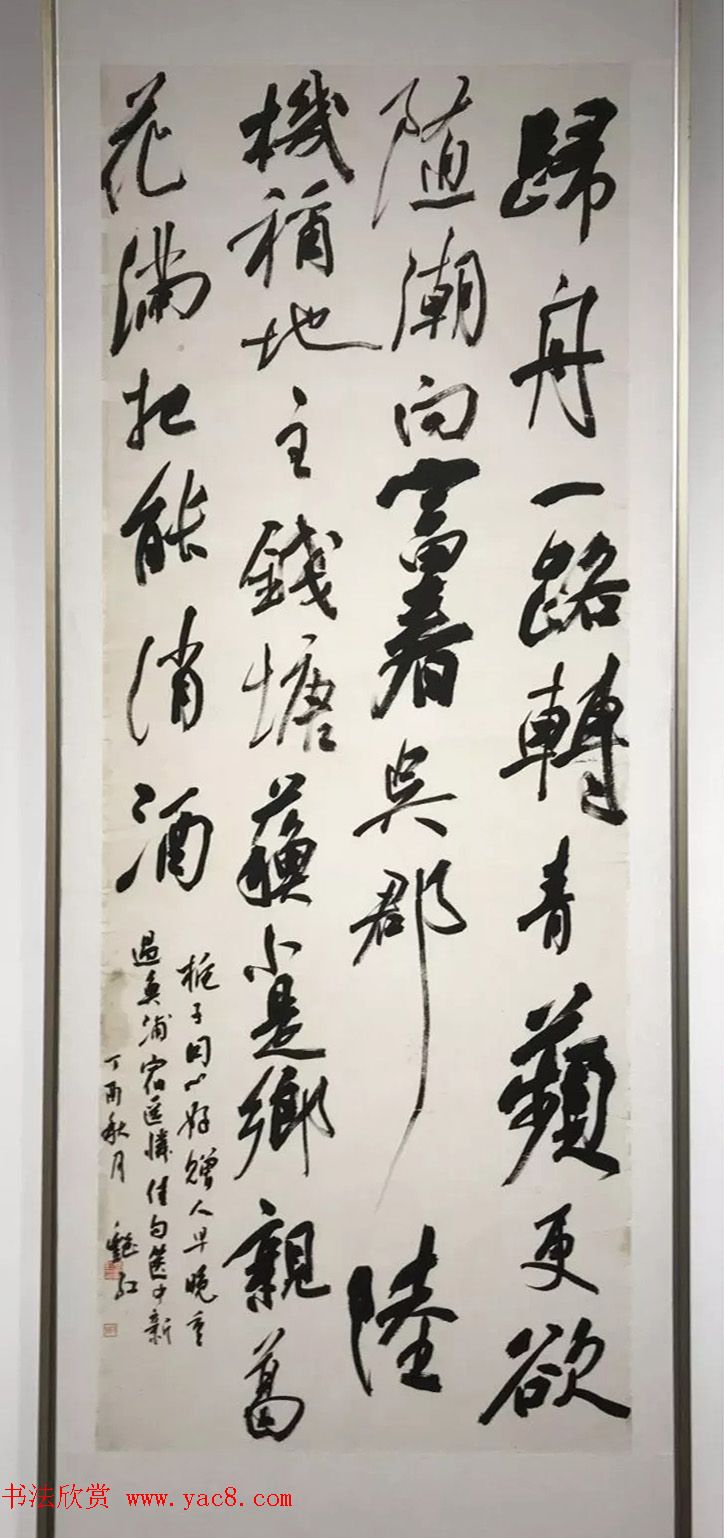 歸舟一路轉青蘋更欲
随潮向富春吳郡陸
機稱地主錢塘蘇小是鄉親葛
花滿把能消酒
栀子同心好贈人早晚重
過魚浦宿遥憐佳句篋中新
丁酉秋月
书法欣赏 www.yac8.com